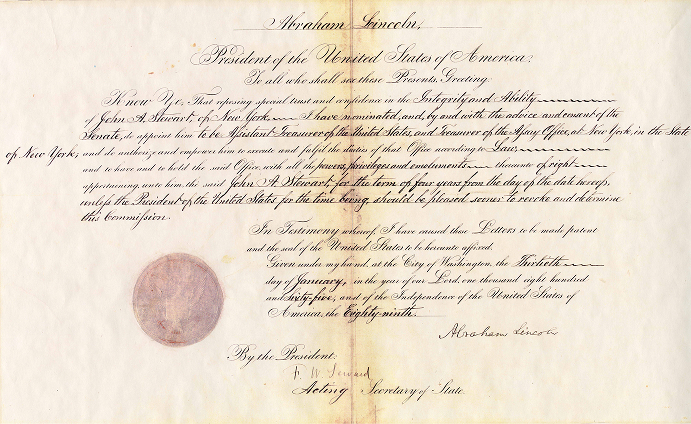 Abraham Lincoln,
President of the United States of America.
To all who shall see these Presents, Greeting:
Know Ye; That reposing special trust and confidence in the Integrity and Ability
of John A. Stewart, of New York, I have nominated, and, by and with the advice and consent of the
Senate, do appoint him to be Assistant Treasurer of the United States, and Treasurer of the Assay Office, at New York, in the State
of New York; and do authorize and empower him to execute and fulfil the duties of that Office according to Law;
and to have and to hold the said Office, with all the powers, privileges and emoluments thereunto of right
appertaining, unto him, the said John A. Stewart, for the term of four years from the day of the date hereof,
unless the President of the United States, for the time being, should be pleased sooner to revoke and determine
this Commission.
In Testimony whereof, I have caused these Letters to be made patent
and the seal of the United States to be hereunto affixed.
Given under my hand, at the City of Washington, the Thirtieth
day of January, in the year of our Lord, one thousand eight hundred
and Sixty-five, and of the Independence of the United States of
America, the Eighty-ninth.
Abraham Lincoln
By the President:
F. W. Seward
Acting Secretary of State.